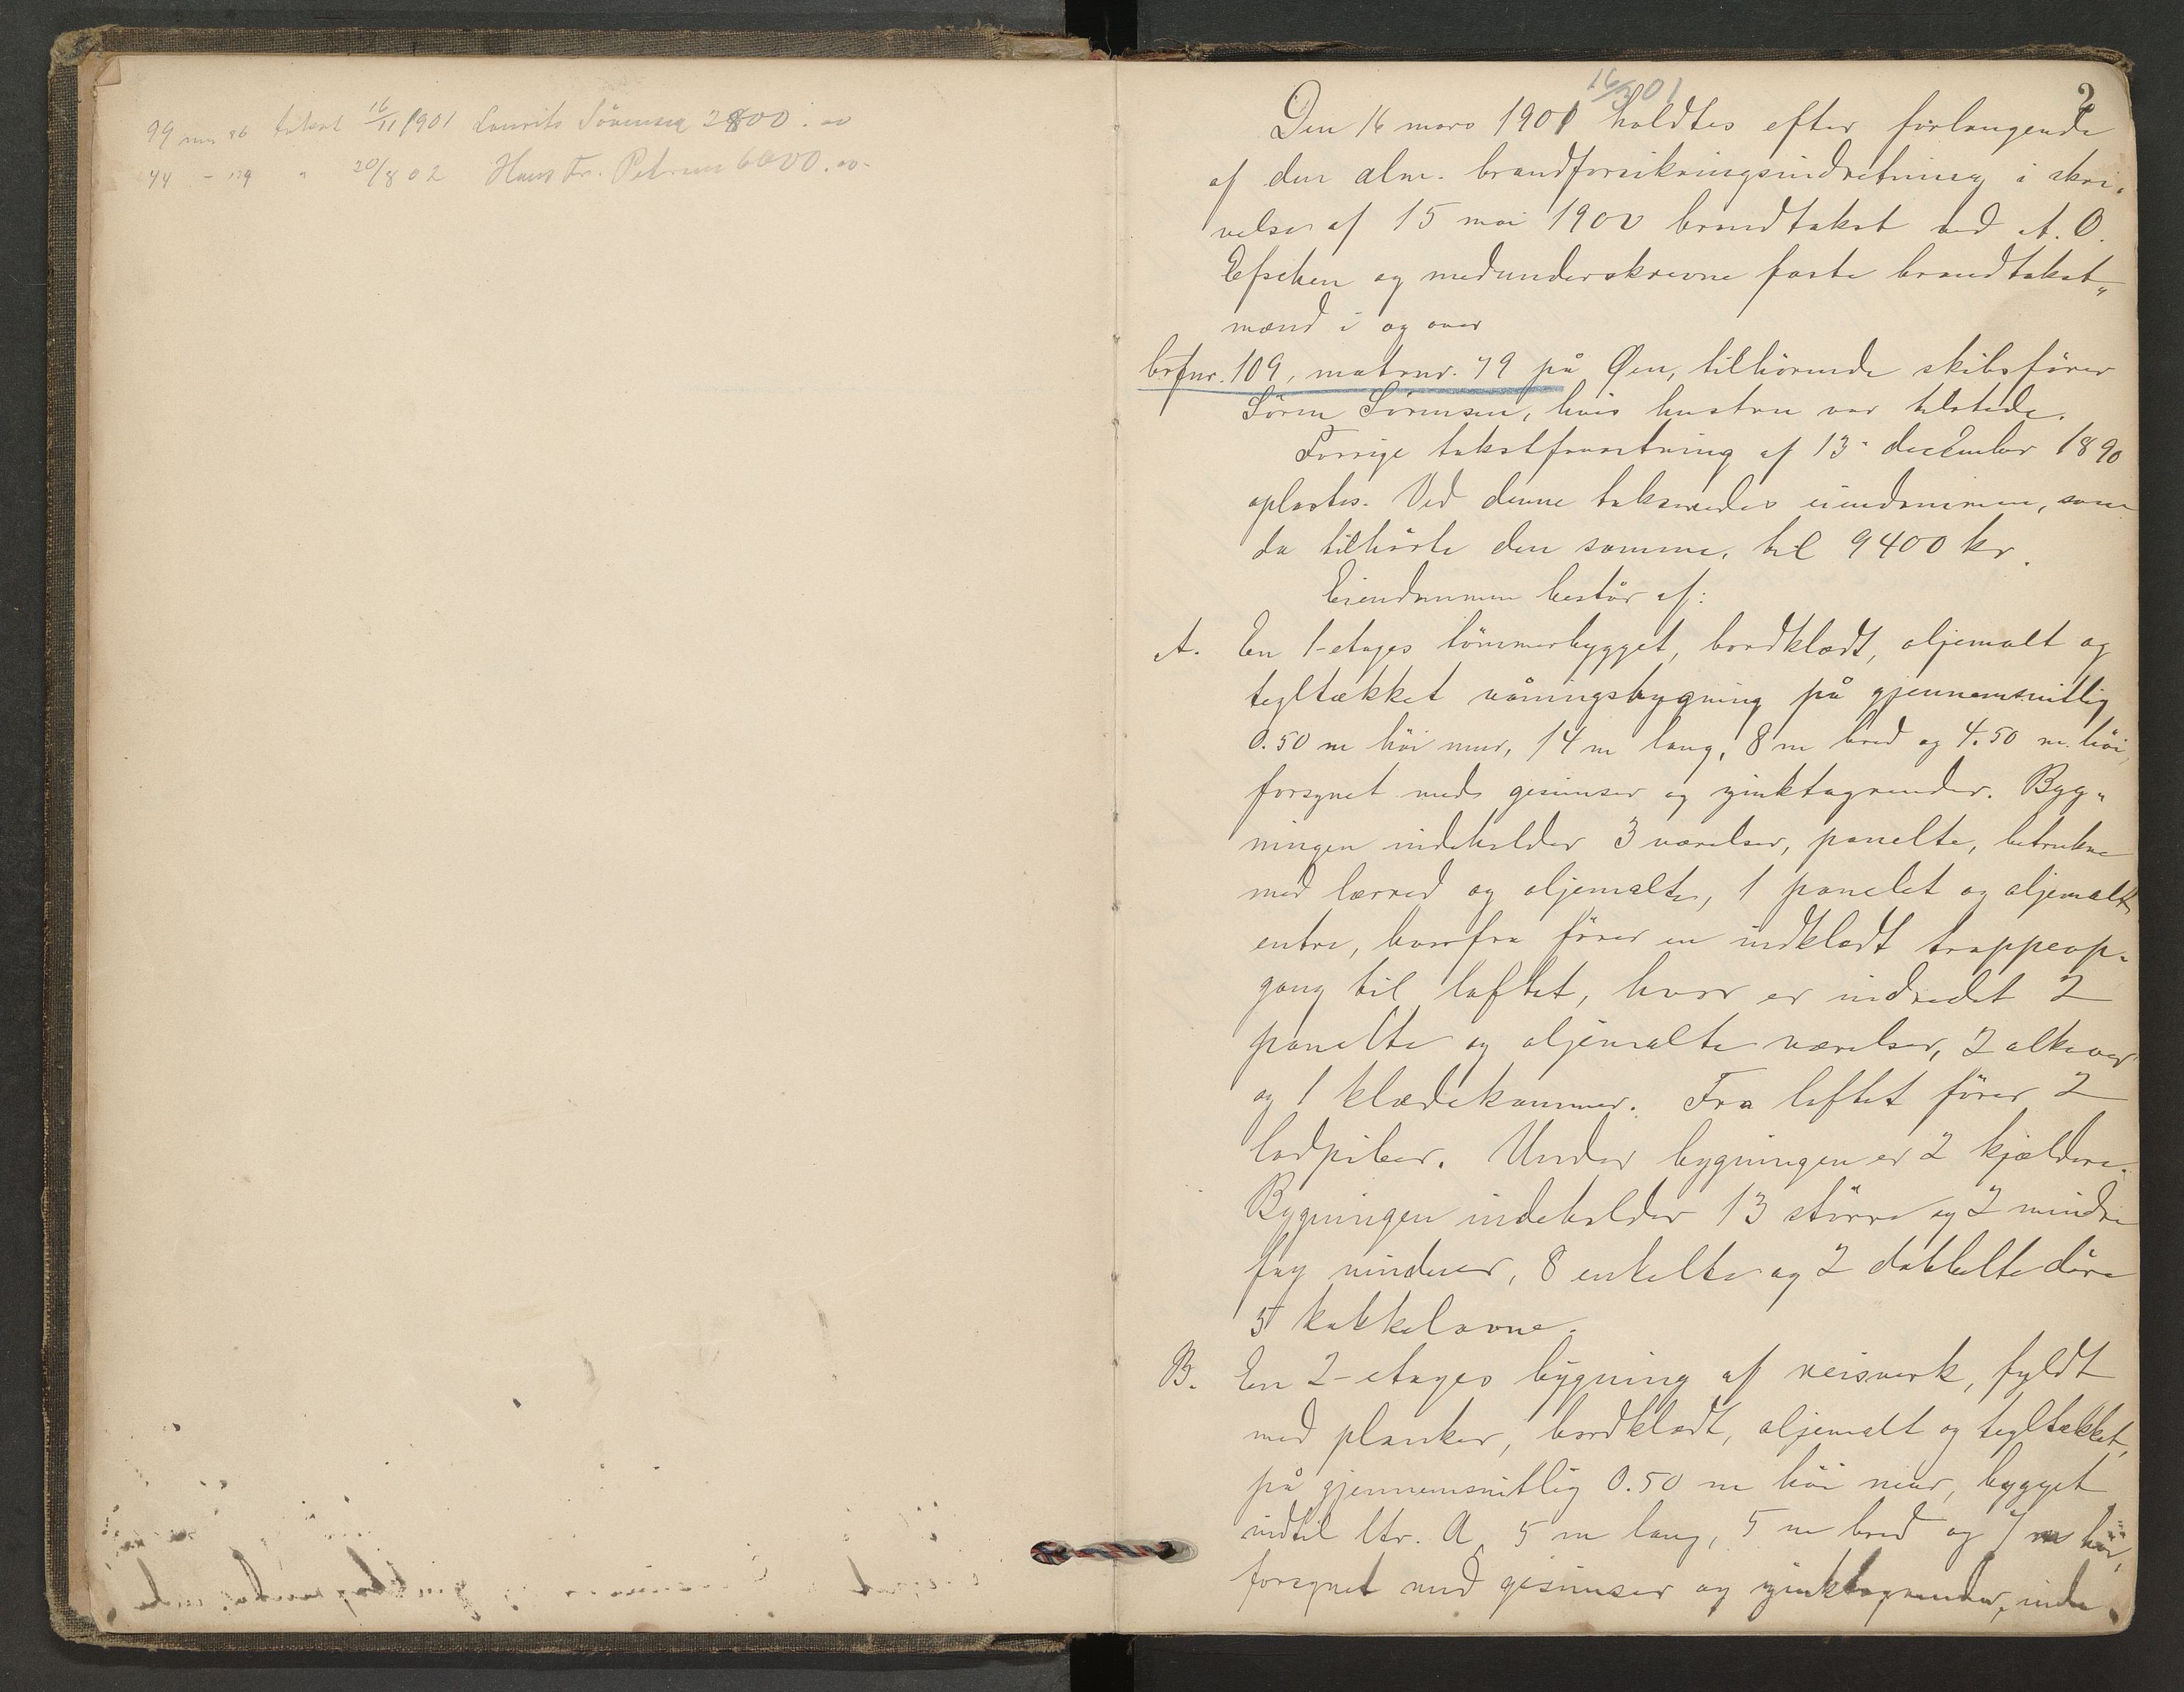 99 mn 86 takst 16/11 1901 Laurits Sörensen 2800.00
44 - 129 " 20/8 02 Hans Fr. Petersen 6000.00
16/3 01
2
Den 16 mars 1901 holdtes efter forlangende
af den alm. brandforsikringsindretning i skri-
velse af 15 mai 1900 brandtakst ved A. O.
og medunderskrevne faste brandtakst-
mænd i og over
brfnr. 109, matrnr. 79 på Øen, tilhörende skibsförer
Sören Sörensen, hvis hustru var tilstede.
Forrige takstforretning af 13. december 1890
oplæstes. Ved denne takseredes eiendommen, som
da tilhörte den samme, til 9400 kr.
Eiendommen består af:
A. En 1-etages tömmerbygget, bordklædt, oljemalt og
tegltækket våningsbygning på gjennemsnitlig
0.50 m höi mur, 14 m lang, 8 m bred og 4.50 m. höi,
forsynet med gesimser og zinktagrender. Byg-
ningen indeholder 3 værelser, panelte, betrukne
med lærred og oljemalte, 1 panelet og oljemalt
entre, hvorfra förer en indklædt trappeop-
gang til loftet, hvor er indredet 2
panelte og oljemalte værelser, 2 alkover
og 1 klædekammer. Fra loftet förer 2
lodpiber. Under bygningen er 2 kjældere.
Bygningen indeholder 13 större og 2 mindre
fag vinduer, 8 enkelte og 2 dobbelte döre
5 kakkelovne.
B. En 2-etages bygning af reisverk, fyldt
med planker, bordklædt, oljemalt og tegltækket,
på gjennemsnitlig 0.50 m höi mur, bygget
indtil ltr. A, 5 m lang, 5 m bred og 7 m höi,
forsynet med gesimser og zinktagrender, inde